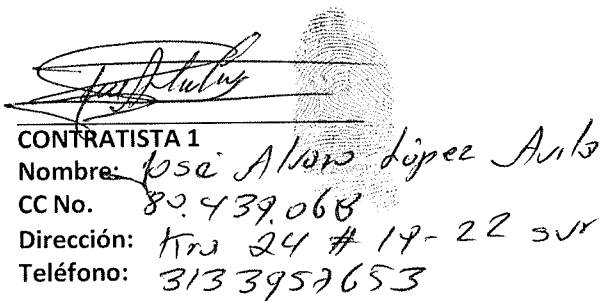 CONTRATISTA 1
Nombre: José Alvaro López Avila
CC No. 80.439.068
Dirección: Kra 24 # 19-22 sur
Teléfono: 3133957653